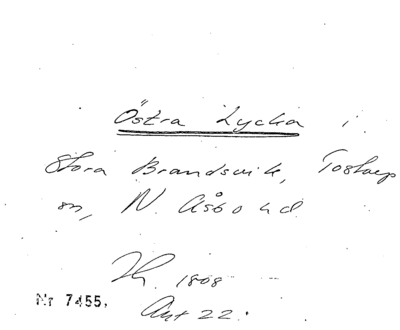 Östra Lycka i
Stora Brandsvik, Tostarp
sn, N. Åsbo hd
Th. 1808
Nr 7455.
Akt 22.